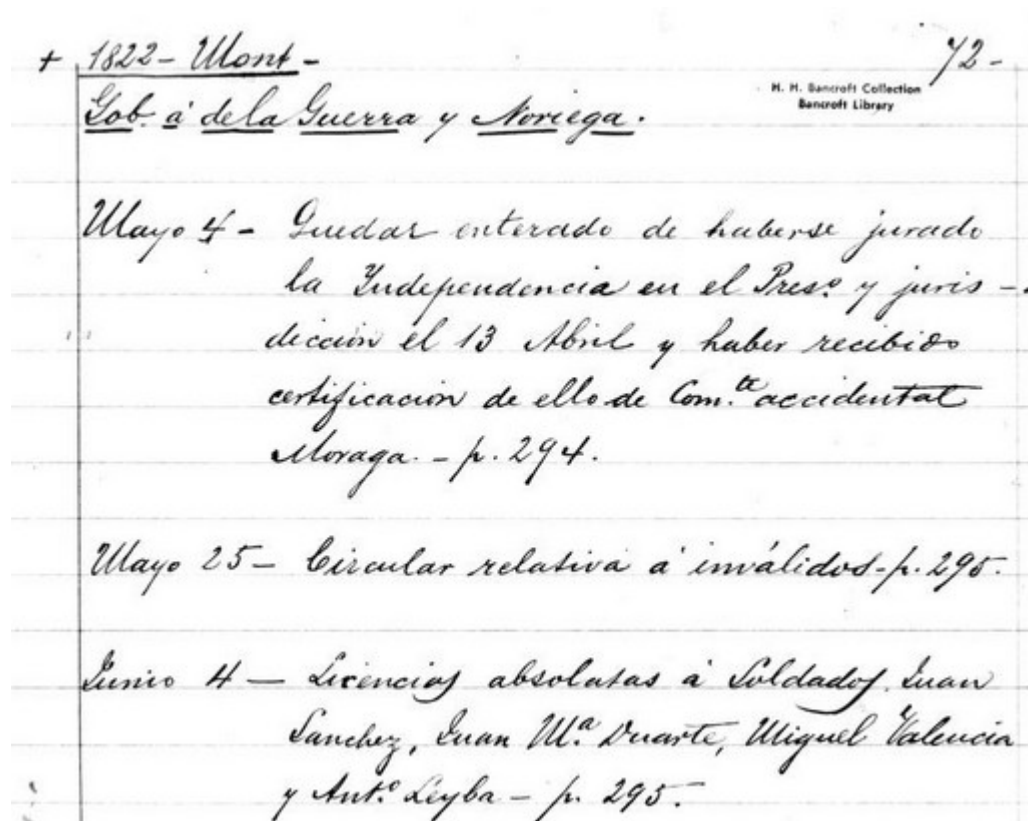 + 1822 - Mont - 72 -
H. H. Bancroft Collection
Bancroft Library
Gob. á de la Guerra y Noriega.
Mayo 4 - Quedar enterado de haberse jurado
la Independencia en el Preso. y juris -
dicción el 13 Abril y haber recibido
certificación de ello de Com.te accidental
Moraga. - p. 294.
Mayo 25 - Circular relativa á inválidos - p. 295.
Junio 4 - Licencias absolutas á Soldados Juan
Sanchez, Juan Ma. Duarte, Miguel Valencia
y Anto. Leyba - p. 295.